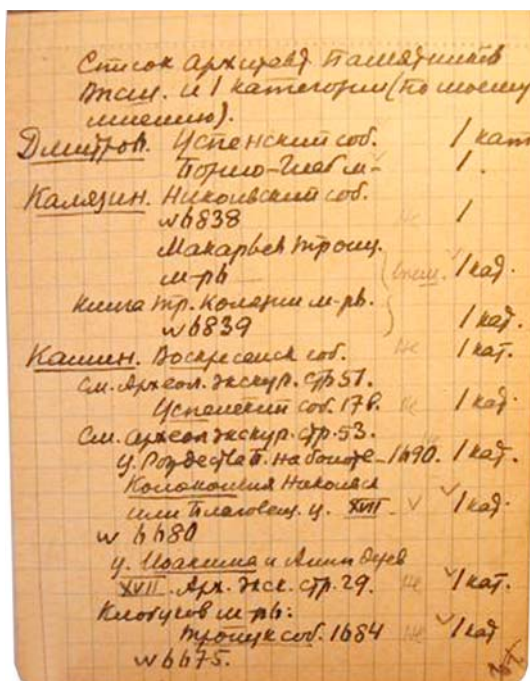 Список архитект памятников
Внеш. и 1 категории (по моему
мнению).
Дмитров. Успенский соб. 1 кат
Борисо-Глеб м- 1.
Калязин. Николаевский соб.
w 6838 не 1
Макарьев Троиц.
м-рь 1 кат.
Книга Тр. Колязин м-рь.
w 6839 1 кат.
Кашин. Воскресенск соб. не 1 кат.
См. Археол. экскур. стр 51.
Успенский соб. 178. не 1 кат.
См. Археол экскур. стр. 53.
ц. Рождества на болоте - 1690. 1 кат.
Николаев
или Благовещ. ц. XVII. v v 1 кат.
w 6680
ц. Иоакима и Анны
XVII. Арх. экс. стр. 29. не v 1 кат.
Клобуков м-рь:
Троицк соб. 1684 не v 1 кат
w 6675.